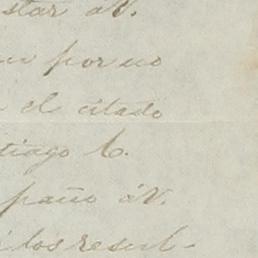 star áV.
por no
el citado
tiago C.
paño áV.
los resul-